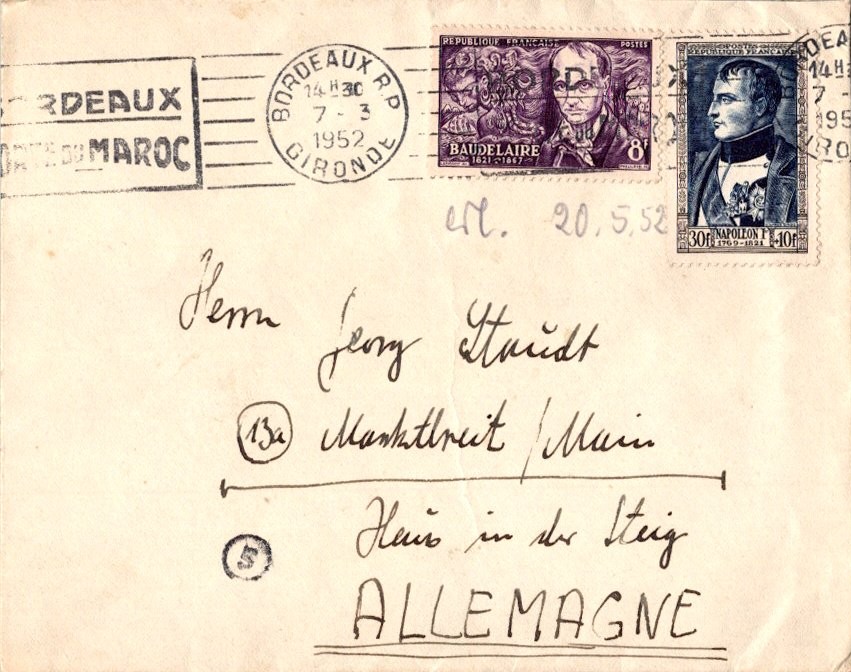 BORDEAUX
PORTE DU MAROC
BORDEAUX R.P.
14H30
7 - 3
1952
GIRONDE
REPUBLIQUE FRANÇAISE POSTES
BAUDELAIRE
1821-1867
8F
POSTES
REPUBLIQUE FRANÇAISE
30f NAPOLEON Ier +10f
1769-1821
erl. 20.5.52
Herrn
Georg Staudt
13a Marktbreit / Main
Haus in der Steig
5
ALLEMAGNE